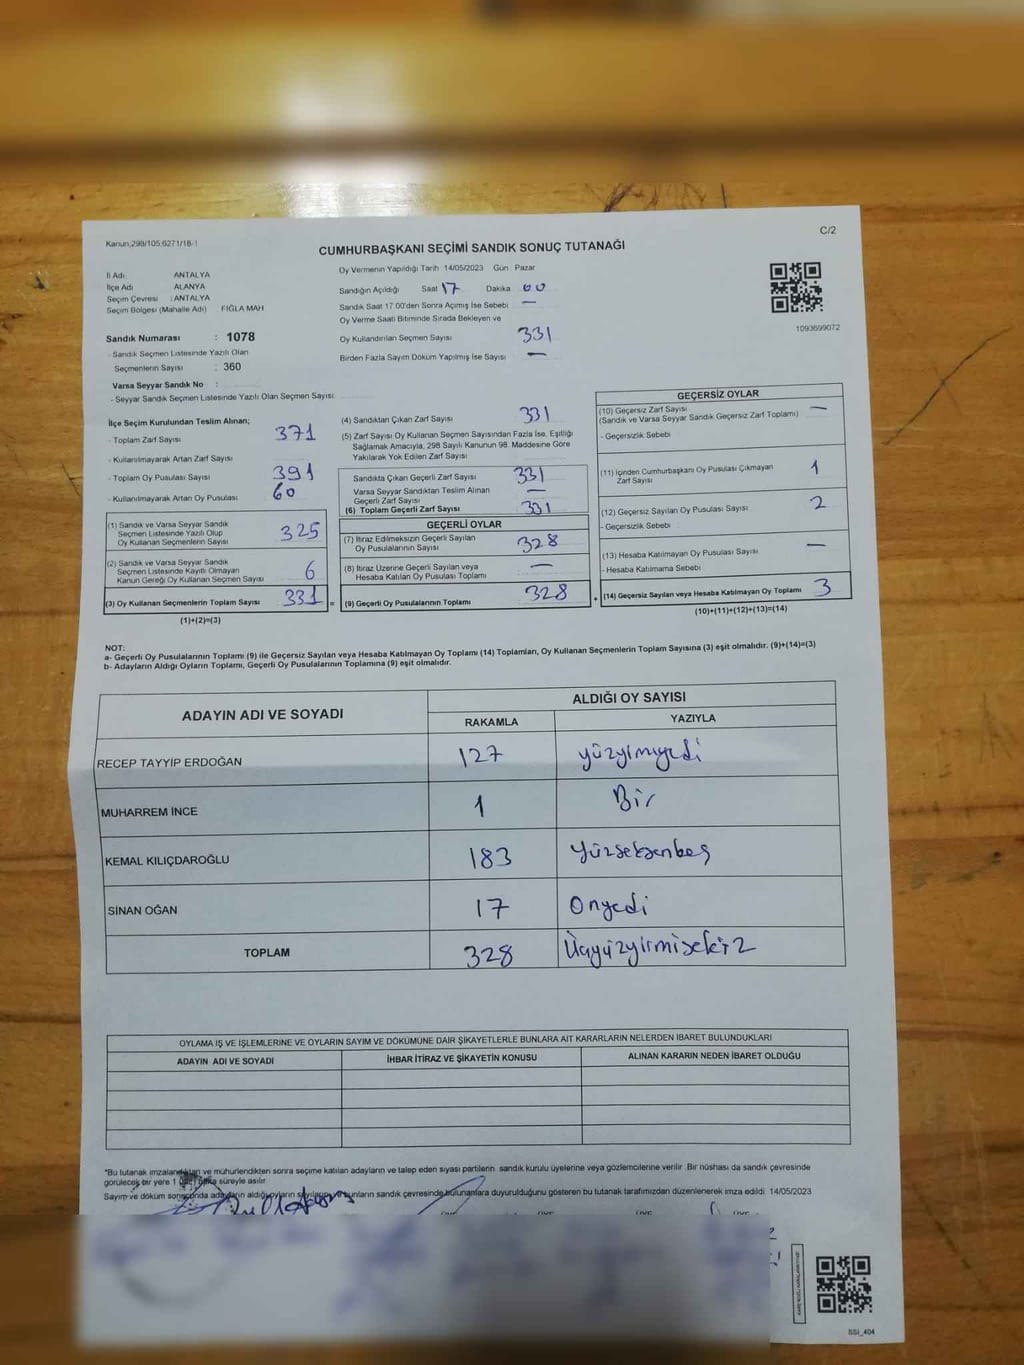 Kanun;298/105,6271/18-1
C/2
CUMHURBAŞKANI SEÇİMİ SANDIK SONUÇ TUTANAĞI
İl Adı : ANTALYA
İlçe Adı : ALANYA
Seçim Çevresi : ANTALYA
Seçim Bölgesi (Mahalle Adı) FIĞLA MAH
Sandık Numarası : 1078
- Sandık Seçmen Listesinde Yazılı Olan
Seçmenlerin Sayısı : 360
Varsa Seyyar Sandık No :
- Seyyar Sandık Seçmen Listesinde Yazılı Olan Seçmen Sayısı
Oy Vermenin Yapıldığı Tarih 14/05/2023 Gün Pazar
Sandığın Açıldığı Saat 17 Dakika 00
Sandık Saat 17.00'den Sonra Açımış İse Sebebi —
Oy Verme Saati Bitiminde Sırada Bekleyen ve
Oy Kullandırılan Seçmen Sayısı 331
Birden Fazla Sayım Döküm Yapılmış İse Sayısı —
1093699072
İlçe Seçim Kurulundan Teslim Alınan;
- Toplam Zarf Sayısı 371
- Kullanılmayarak Artan Zarf Sayısı
- Toplam Oy Pusulası Sayısı 391
- Kullanılmayarak Artan Oy Pusulası 60
(1) Sandık ve Varsa Seyyar Sandık
Seçmen Listesinde Yazılı Olup
Oy Kullanan Seçmenlerin Sayısı 325
(2) Sandık ve Varsa Seyyar Sandık
Seçmen Listesinde Kayıtlı Olmayan
Kanun Gereği Oy Kullanan Seçmen Sayısı 6
(3) Oy Kullanan Seçmenlerin Toplam Sayısı 331 =
(1)+(2)=(3)
(4) Sandıktan Çıkan Zarf Sayısı 331
(5) Zarf Sayısı Oy Kullanan Seçmen Sayısından Fazla İse, Eşitliği
Sağlamak Amacıyla, 298 Sayılı Kanunun 98. Maddesine Göre
Yakılarak Yok Edilen Zarf Sayısı
Sandıkta Çıkan Geçerli Zarf Sayısı 331
Varsa Seyyar Sandıktan Teslim Alınan
Geçerli Zarf Sayısı —
(6) Toplam Geçerli Zarf Sayısı 331
GEÇERLİ OYLAR
(7) İtiraz Edilmeksizin Geçerli Sayılan
Oy Pusulalarının Sayısı 328
(8) İtiraz Üzerine Geçerli Sayılan veya
Hesaba Katılan Oy Pusulası Toplamı —
(9) Geçerli Oy Pusulalarının Toplamı 328 +
GEÇERSİZ OYLAR
(10) Geçersiz Zarf Sayısı
(Sandık ve Varsa Seyyar Sandık Geçersiz Zarf Toplamı) —
- Geçersizlik Sebebi
(11) İçinden Cumhurbaşkanı Oy Pusulası Çıkmayan
Zarf Sayısı 1
(12) Geçersiz Sayılan Oy Pusulası Sayısı 2
- Geçersizlik Sebebi
(13) Hesaba Katılmayan Oy Pusulası Sayısı —
- Hesaba Katılmama Sebebi
(14) Geçersiz Sayılan veya Hesaba Katılmayan Oy Toplamı 3
(10)+(11)+(12)+(13)=(14)
NOT:
a- Geçerli Oy Pusulalarının Toplamı (9) ile Geçersiz Sayılan veya Hesaba Katılmayan Oy Toplamı (14) Toplamları, Oy Kullanan Seçmenlerin Toplam Sayısına (3) eşit olmalıdır. (9)+(14)=(3)
b- Adayların Aldığı Oyların Toplamı, Geçerli Oy Pusulalarının Toplamına (9) eşit olmalıdır.
ADAYIN ADI VE SOYADI
ALDIĞI OY SAYISI
RAKAMLA YAZIYLA
RECEP TAYYİP ERDOĞAN 127 yüzyirmiyedi
MUHARREM İNCE 1 Bir
KEMAL KILIÇDAROĞLU 183 Yüzseksenbeş
SİNAN OĞAN 17 Onyedi
TOPLAM 328 Üçyüzyirmisekiz
OYLAMA İŞ VE İŞLEMLERİNE VE OYLARIN SAYIM VE DÖKÜMÜNE DAİR ŞİKAYETLERLE BUNLARA AİT KARARLARIN NELERDEN İBARET BULUNDUKLARI
ADAYIN ADI VE SOYADI İHBAR İTİRAZ VE ŞİKAYETİN KONUSU ALINAN KARARIN NEDEN İBARET OLDUĞU
*Bu tutanak imzalandıktan ve mühürlendikten sonra seçime katılan adayların ve talep eden siyasi partilerin sandık kurulu üyelerine veya gözlemcilerine verilir. Bir nüshası da sandık çevresinde
görülecek bir yere 1 hafta süreyle asılır
Sayım ve döküm sonucunda adayların aldığı oyların sayılarını ve bunların sandık çevresinde bulunanlara duyurulduğunu gösteren bu tutanak tarafımızdan düzenlenerek imza edildi. 14/05/2023
SSI_404